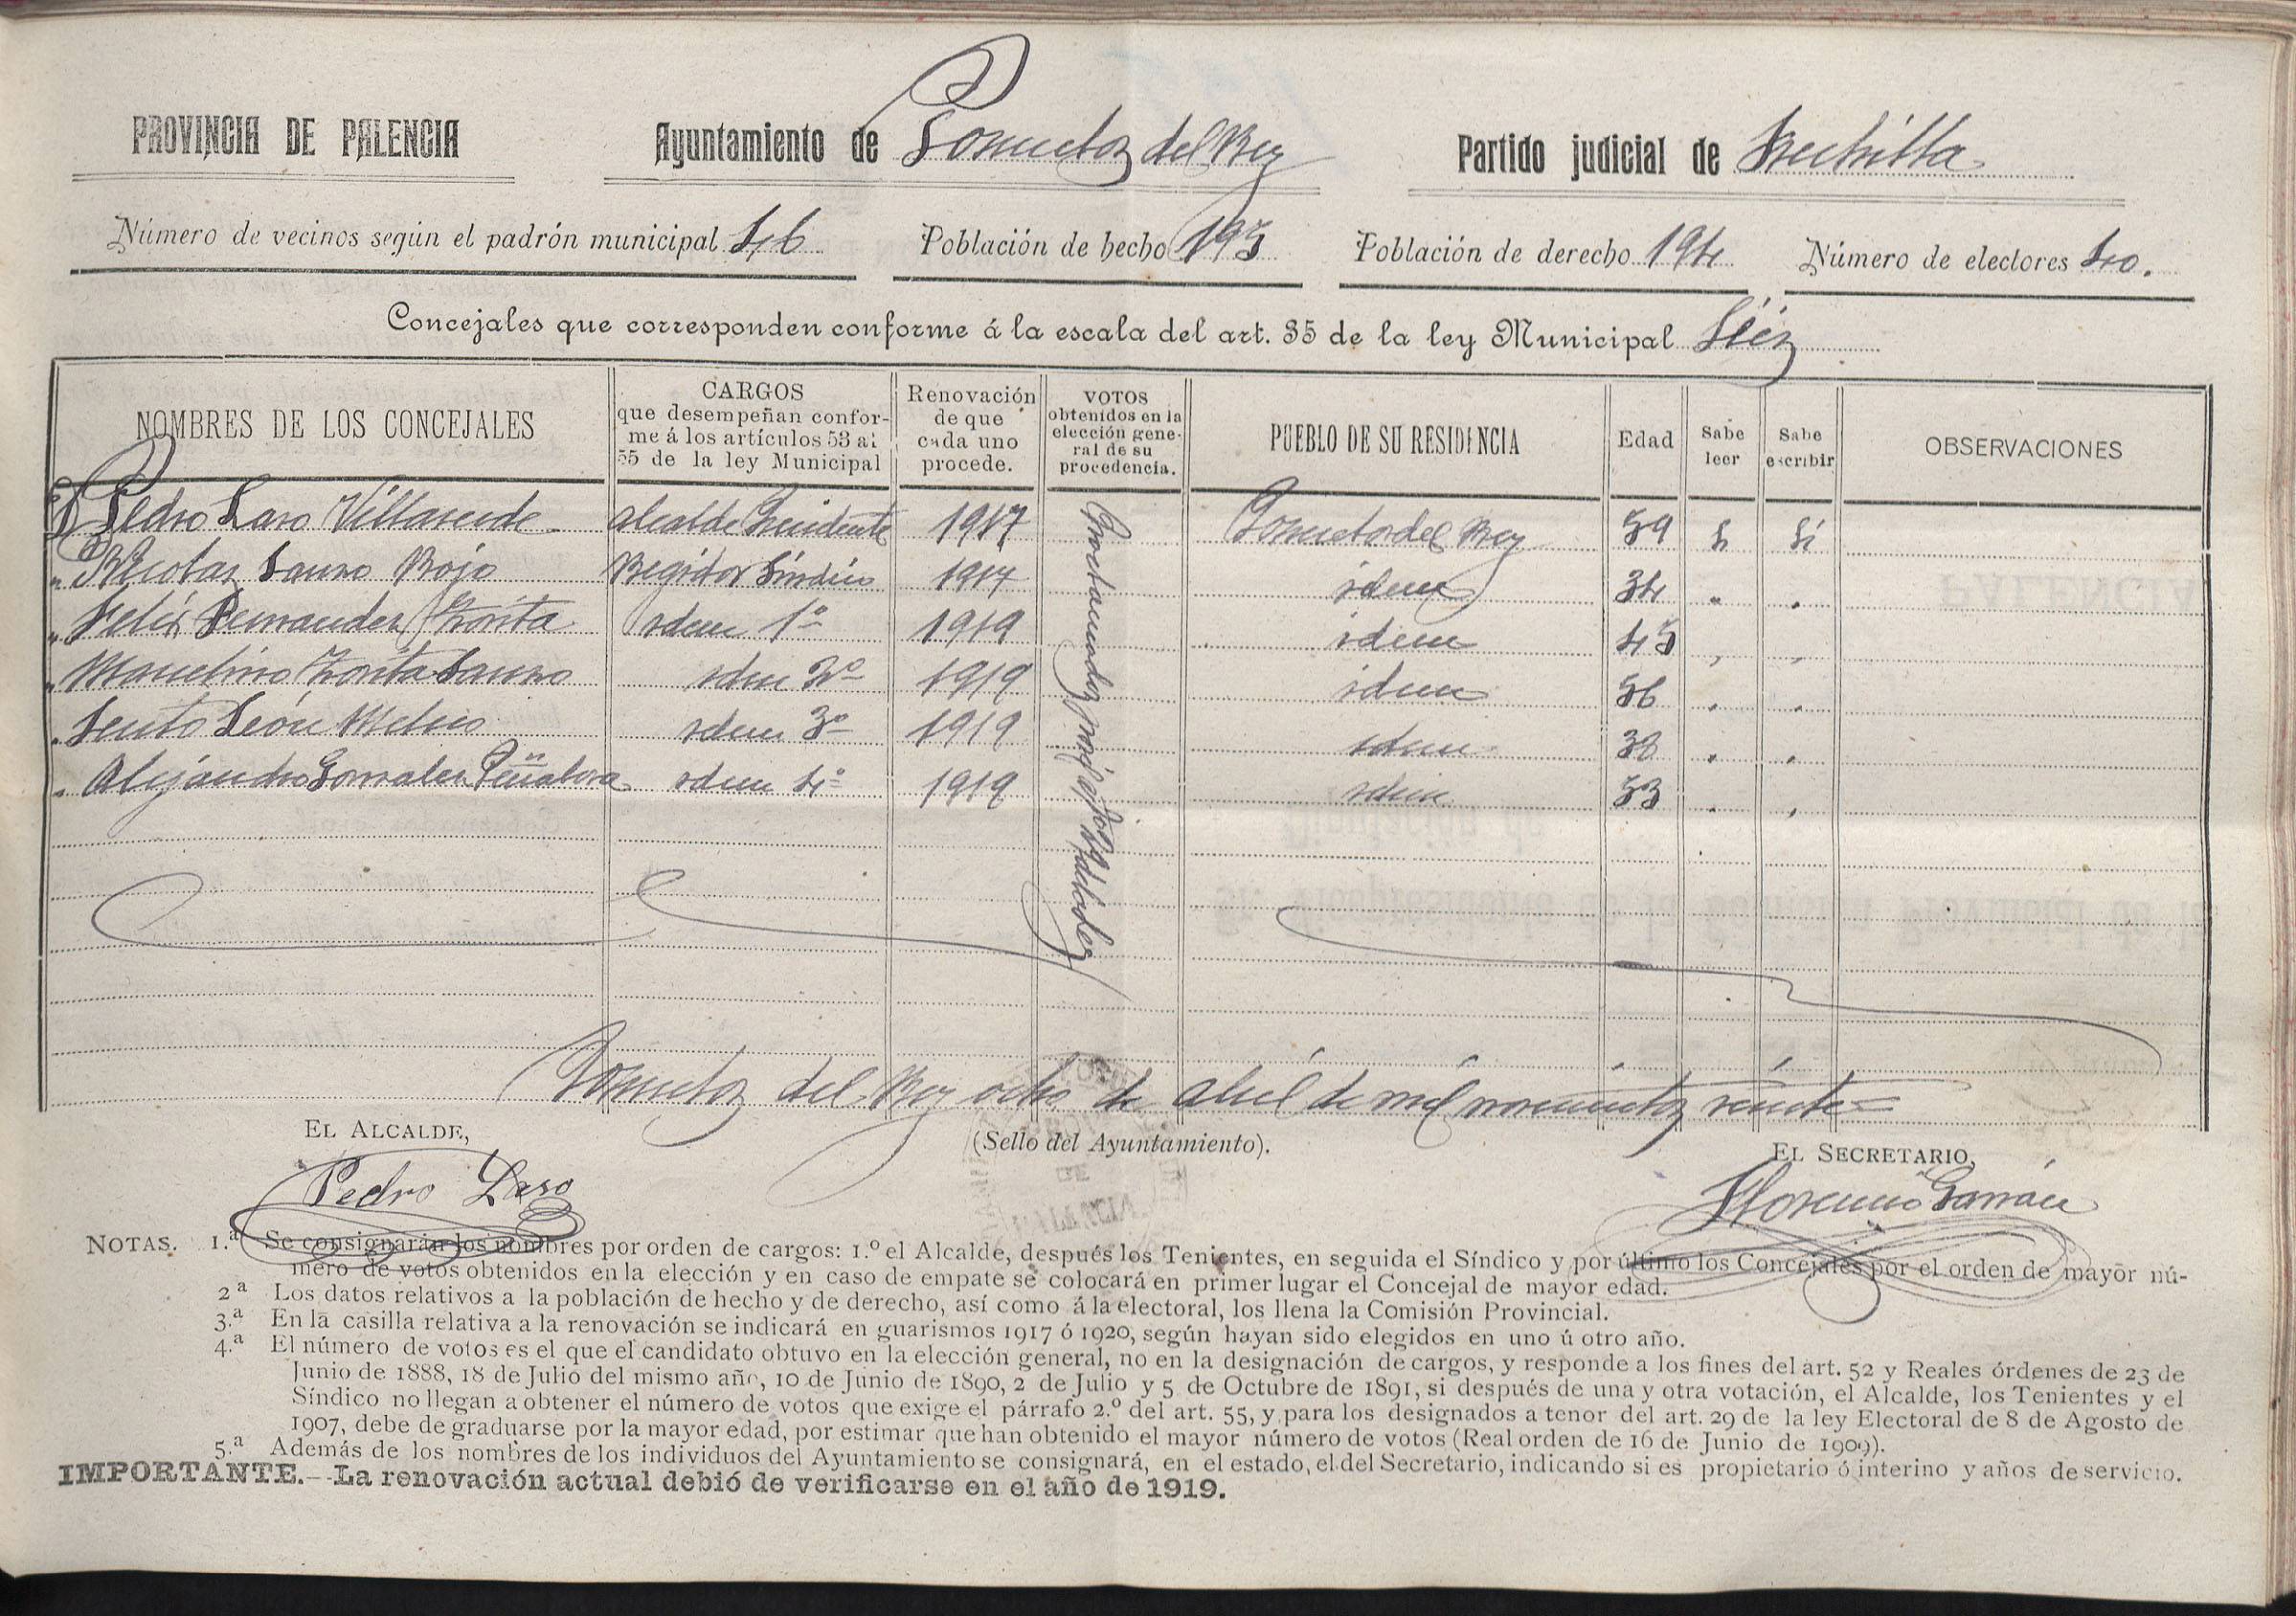 PROVINCIA DE PALENCIA Ayuntamiento de Pozuelos del Rey Partido judicial de Frechilla
Número de vecinos según el padrón municipal 46 Población de hecho 195 Población de derecho 194 Número de electores 40.
Concejales que corresponden conforme á la escala del art. 35 de la ley Municipal Séis
NOMBRES DE LOS CONCEJALES
CARGOS
que desempeñan confor-
me á los artículos 53 al
55 de la ley Municipal
Renovación
de que
cada uno
procede.
VOTOS
obtenidos en la
elección gene-
ral de su
procedencia.
PUEBLO DE SU RESIDENCIA
Edad
Sabe
leer
Sabe
escribir
OBSERVACIONES
D. Pedro Laso Villaverde alcalde Presidente 1917 Pozuelos del Rey 59 Si Si
" Nicolas Rojo Regidor Síndico 1917 idem 34 " "
" Felix Fernandez Zorita idem 1º 1919 idem 45 " "
" Marcelino Zorita idem 2º 1919 idem 56 " "
" León idem 3º 1919 idem 38 " "
" Alejandro Gonzalez Peñalova idem 4º 1919 idem 53 " "
Proclamados por el
Pozuelos del Rey ocho de abril de mil novecientos veinte=
EL ALCALDE,
(Sello del Ayuntamiento).
EL SECRETARIO,
Pedro Laso
Florencio Garrán
NOTAS. 1.ª Se consignarán los nombres por orden de cargos: 1.º el Alcalde, después los Tenientes, en seguida el Síndico y por último los Concejales por el orden de mayor nú-
mero de votos obtenidos en la elección y en caso de empate se colocará en primer lugar el Concejal de mayor edad.
2ª Los datos relativos a la población de hecho y de derecho, así como á la electoral, los llena la Comisión Provincial.
3.ª En la casilla relativa a la renovación se indicará en guarismos 1917 ó 1920, según hayan sido elegidos en uno ú otro año.
4.ª El número de votos es el que el candidato obtuvo en la elección general, no en la designación de cargos, y responde a los fines del art. 52 y Reales órdenes de 23 de
Junio de 1888, 18 de Julio del mismo año, 10 de Junio de 1890, 2 de Julio y 5 de Octubre de 1891, si después de una y otra votación, el Alcalde, los Tenientes y el
Síndico no llegan a obtener el número de votos que exige el párrafo 2.º del art. 55, y para los designados a tenor del art. 29 de la ley Electoral de 8 de Agosto de
1907, debe de graduarse por la mayor edad, por estimar que han obtenido el mayor número de votos (Real orden de 16 de Junio de 1909).
5.ª Además de los nombres de los individuos del Ayuntamiento se consignará, en el estado, el del Secretario, indicando si es propietario ó interino y años de servicio.
IMPORTANTE.—La renovación actual debió de verificarse en el año de 1919.